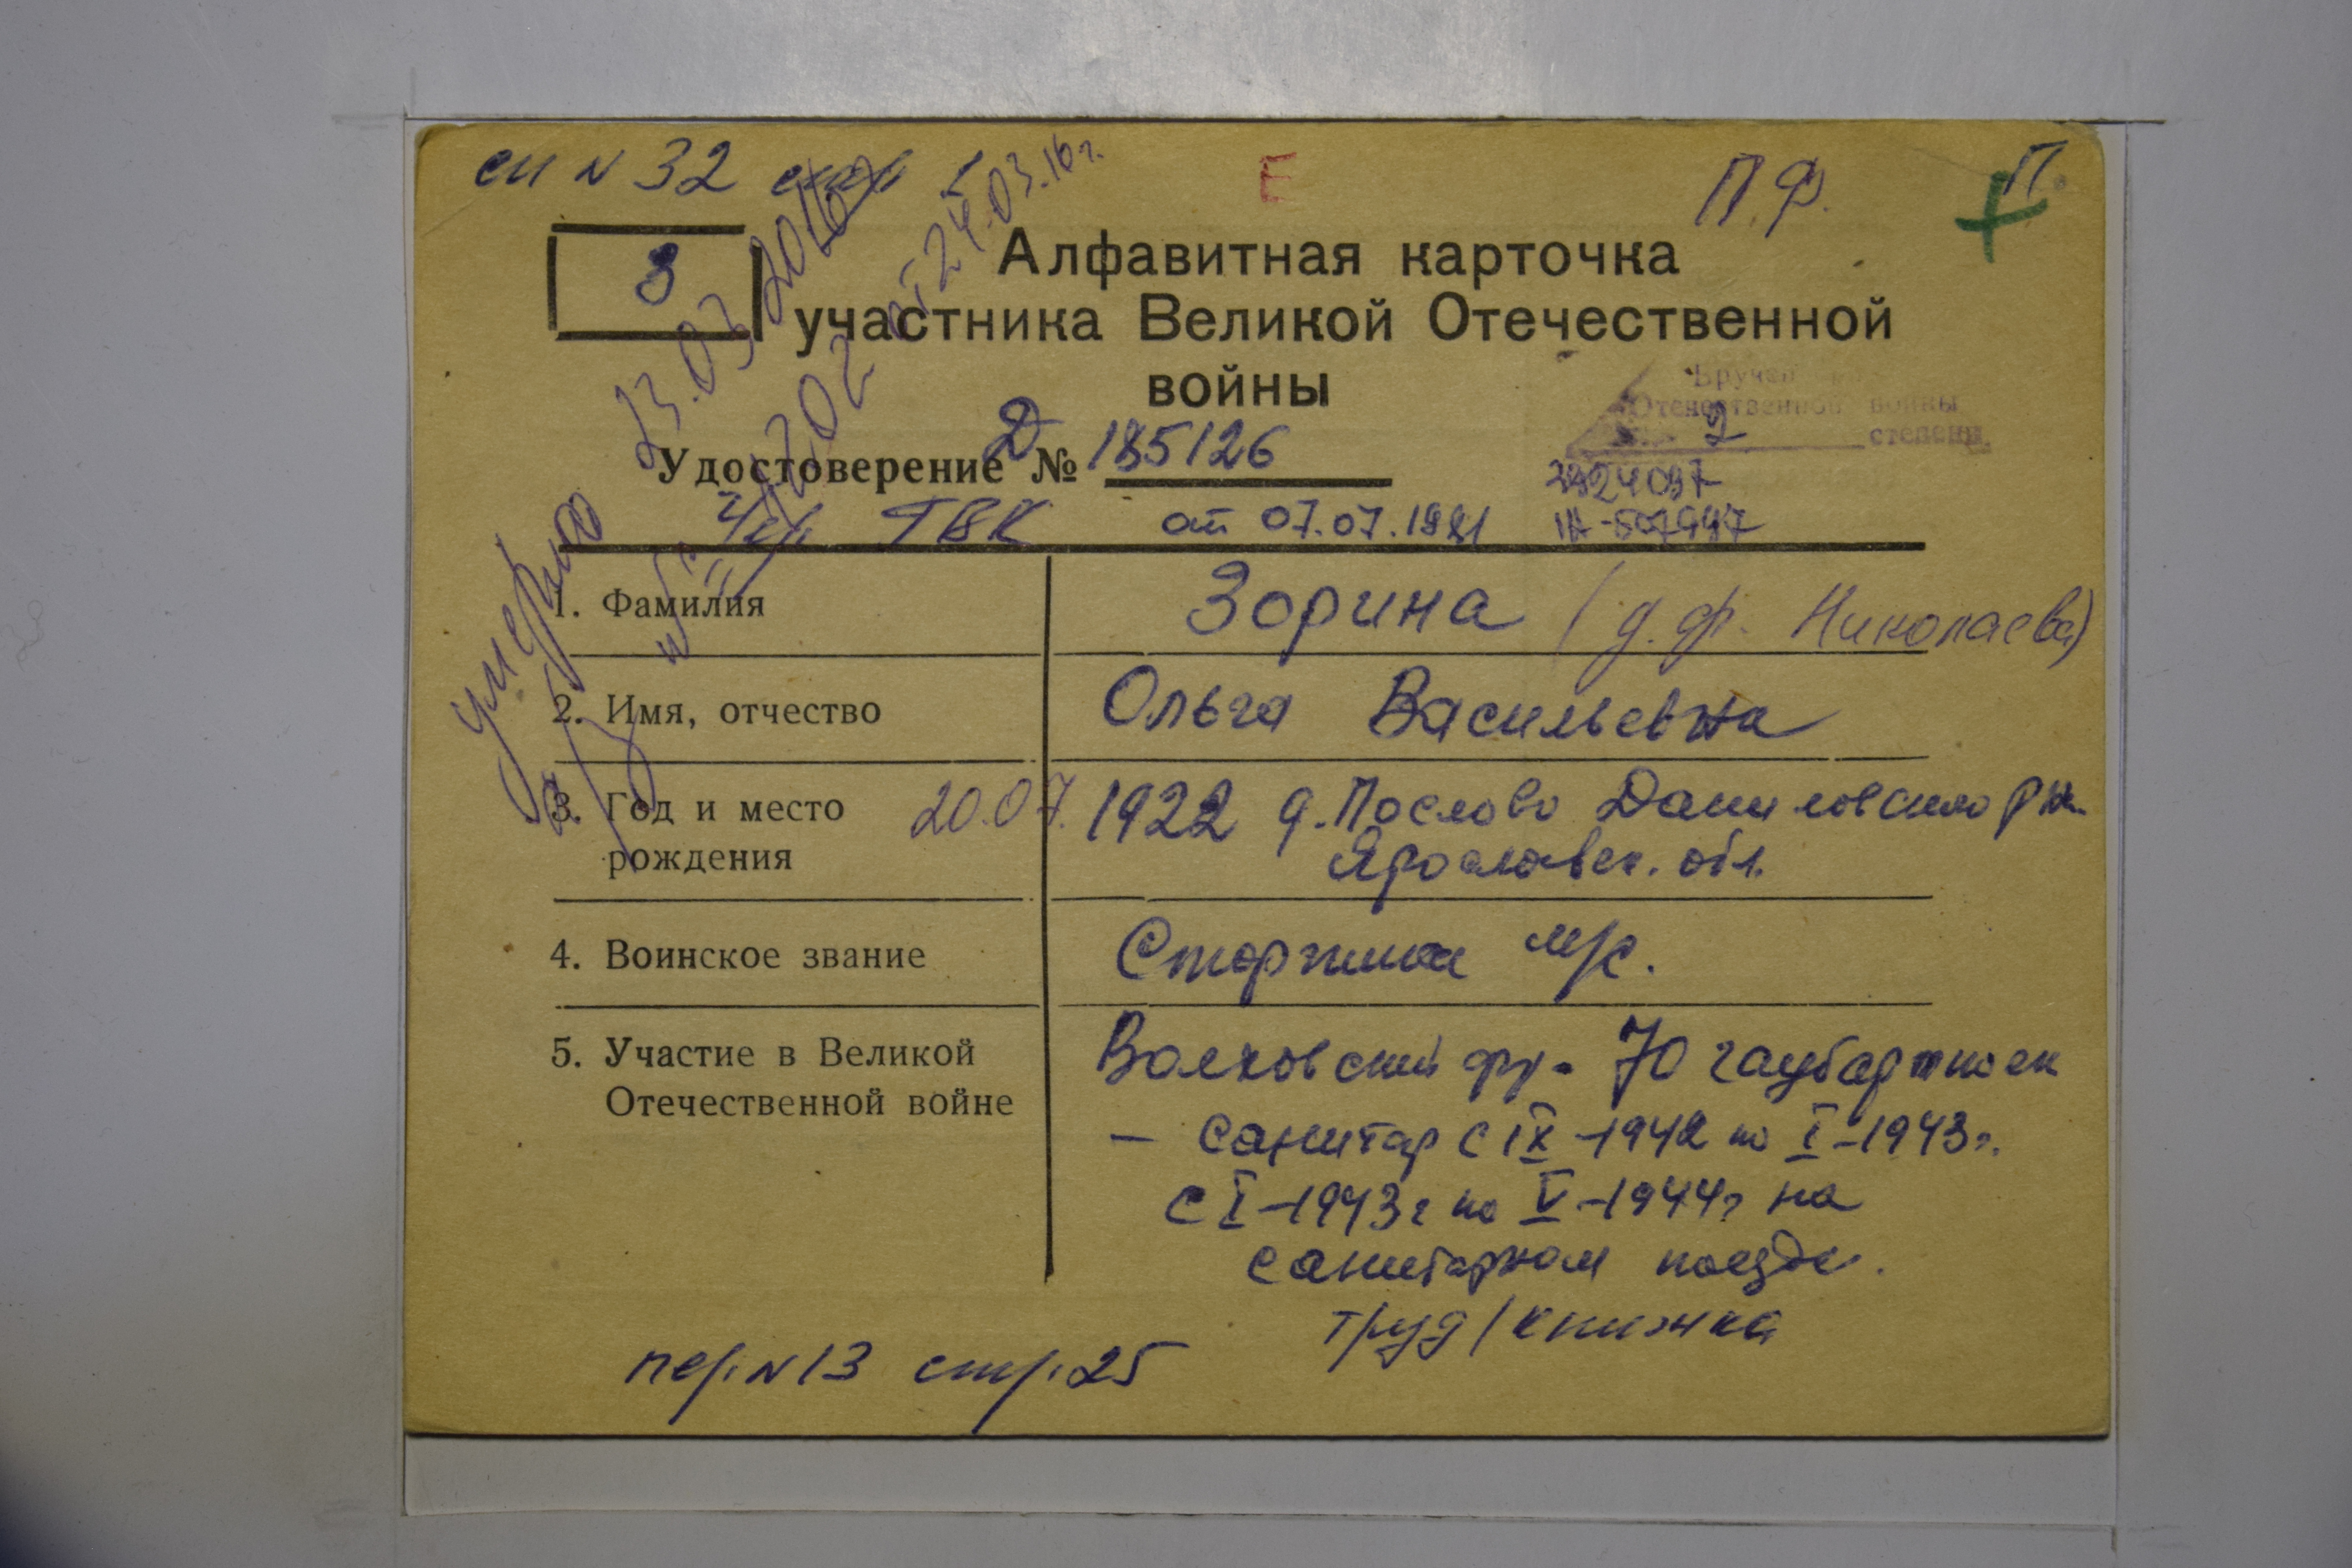 сп N 32 стр 1
Е
П.Ф.
П.
З
Алфавитная карточка
участника Великой Отечественной
войны
Вручен
Отечественной войны
2 степени
Удостоверение Д № 185126
Чер. ГВК от 07.07.1981
умерла
23.03.2016
от 24.03.16г.
1. Фамилия Зорина (д.ф. Николаева)
2. Имя, отчество Ольга Васильевна
3. Год и место 20.07. 1922 д. Послово Даниловского р-на
рождения Ярославск. обл.
4. Воинское звание Старшина м/с.
5. Участие в Великой Волховский фр. 70 гаубартполк
Отечественной войне
— санитар с IX-1942 по I-1943г.
с I-1943г по V-1944г на
санитарном поезде.
труд/книжка
пер. N 13 стр. 25